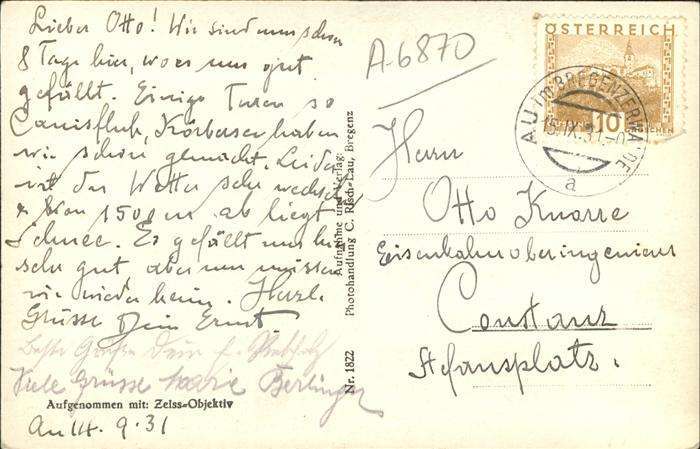 Lieber Otto! Wir sind nun schon
8 Tage hier, wo es uns gut
gefällt. Einige Turen so
Canisfluh, Körbersee haben
wir schon gemacht. Leider
ist das Wetter sehr wechsel
& von 1500 m ab liegt
Schnee. Es gefällt uns hier
sehr gut, aber nun müssen
wir wieder heim. Herzl.
Grüsse Dein Ernst
Beste Grüße Dein
Viele Grüsse Marie Berlinger
Aufgenommen mit: Zeiss-Objektiv
Au 14. 9. 31
Nr. 1822
Aufnahme und Verlag:
Photohandlung C. Risch-Lau, Bregenz
A-6870
ÖSTERREICH
10
GROSCHEN
AU im BREGENZERWALDE
15.IX.31
a
Herrn
Otto Knorre
Eisenbahnoberingenieur
Constanz
Stefansplatz.